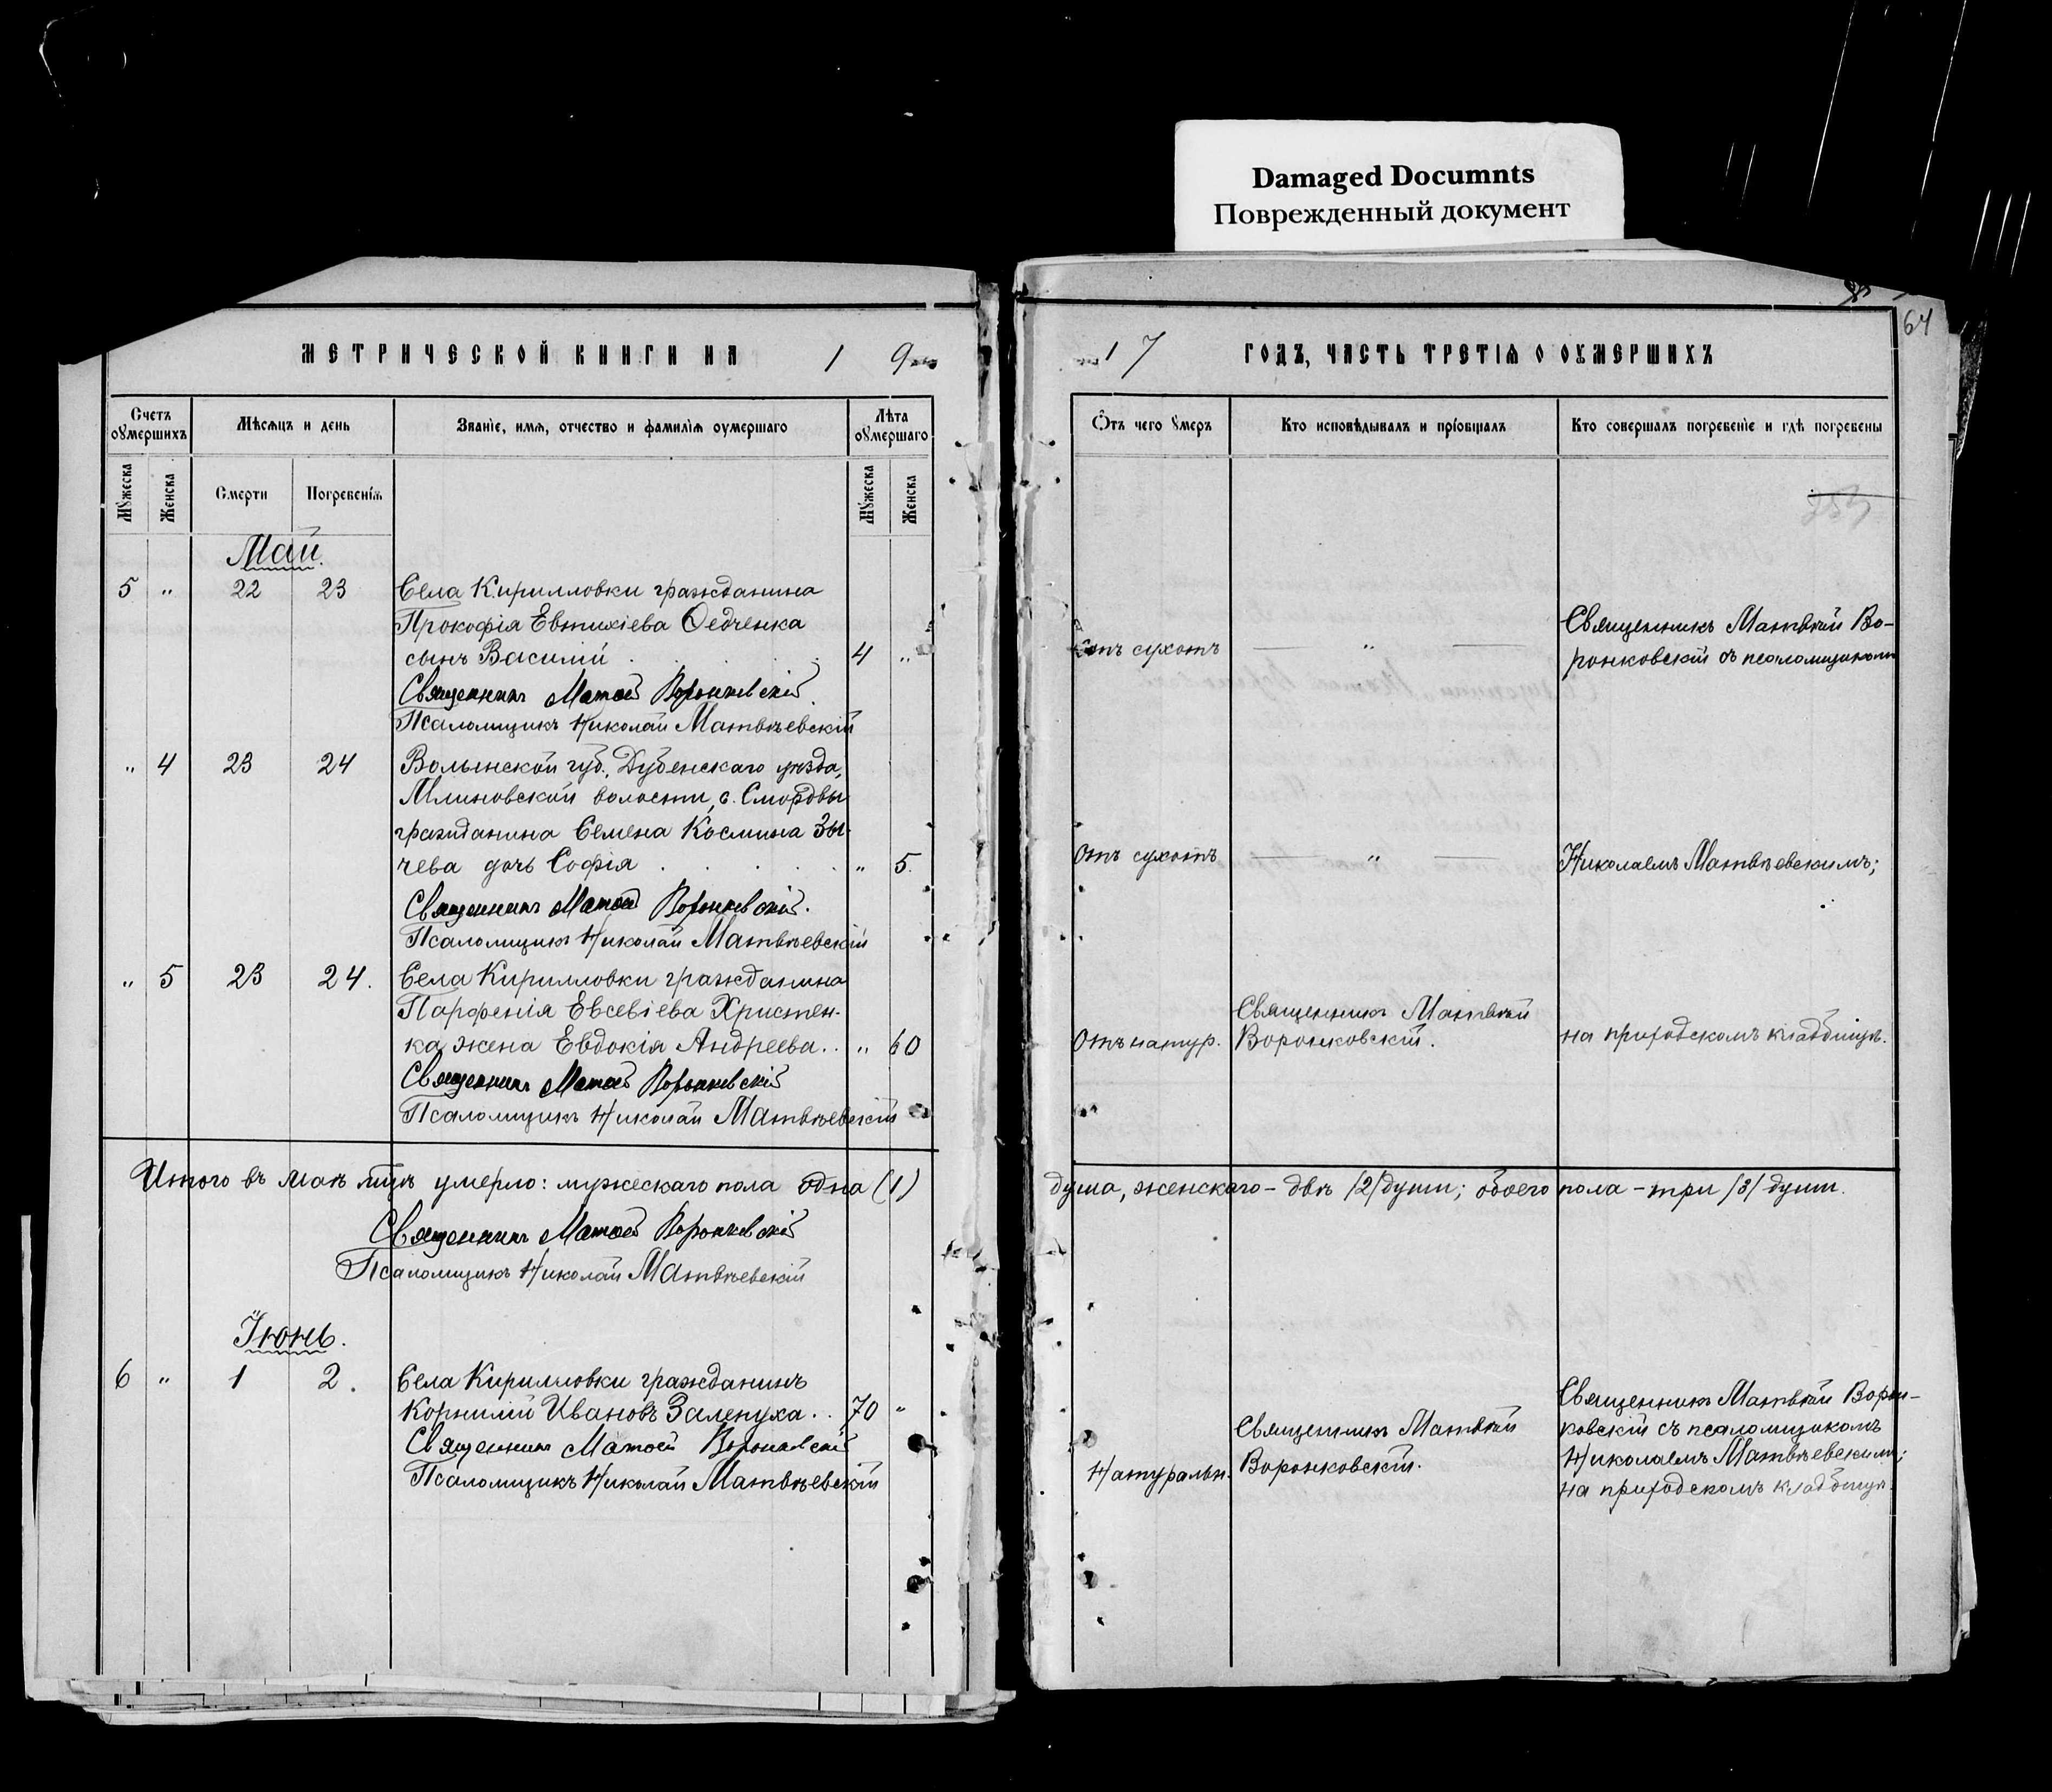 Damaged Documnts
Поврежденный документ
64
МЕТРИЧЕСКОЙ КНИГИ НА 1 9
Счетъ оумершихъ
Мѣсяцъ и день
Званіе, имя, отчество и фамилія оумершаго
Лѣта оумершаго
Мужеска
Женска
Смерти
Погребенія
Мужеска
Женска
Май.
5 " 22 23 Села Кирилловки гражданина
Прокофія Евтихіева Федченка
сынъ Василій . . . . 4 "
Священникъ Матѳей Воронковскій
Псаломщикъ Николай Матвѣевскій
" 4 23 24 Волынской губ., Дубенскаго уѣзда,
Млиновской волости, с. Смордвы
гражданина Семена Космина Зы-
чева дочь Софія . . . . . " 5.
Священникъ Матѳей Воронковскій.
Псаломщикъ Николай Матвѣевскій
" 5 23 24. Села Кирилловки гражданина
Парфенія Евсевіева Христен-
ка жена Евдокія Андреева. . " 60
Священникъ Матѳей Воронковскій
Псаломщикъ Николай Матвѣевскій
Итого въ маѣ мцѣ умерло: мужескаго пола одна (1)
Священникъ Матѳей Воронковскій
Псаломщикъ Николай Матвѣевскій
Іюнь.
6 " 1 2. Села Кирилловки гражданинъ
Корнилій Ивановъ Залепуха. . 70 "
Священникъ Матѳей Воронковскій
Псаломщикъ Николай Матвѣевскій
1 7 ГОДЪ, ЧАСТЬ ТРЕТІЯ О ОУМЕРШИХЪ
Отъ чего умеръ
Кто исповѣдывалъ и пріобщалъ
Кто совершалъ погребеніе и гдѣ погребены
Священникъ Матвѣй Во-
Отъ сухотъ — " — ронковскій съ псаломщикомъ
Отъ сухотъ — " — Николаемъ Матвѣевскимъ;
Священникъ Матвѣй
Отъ натур. Воронковскій. на приходскомъ кладбищѣ.
душа, женскаго – двѣ /2/ души; обоего пола – три /3/ души.
Священникъ Матвѣй Ворон-
Священникъ Матвѣй ковскій съ псаломщикомъ
Натуральн. Воронковскій. Николаемъ Матвѣевскимъ;
на приходскомъ кладбищѣ.